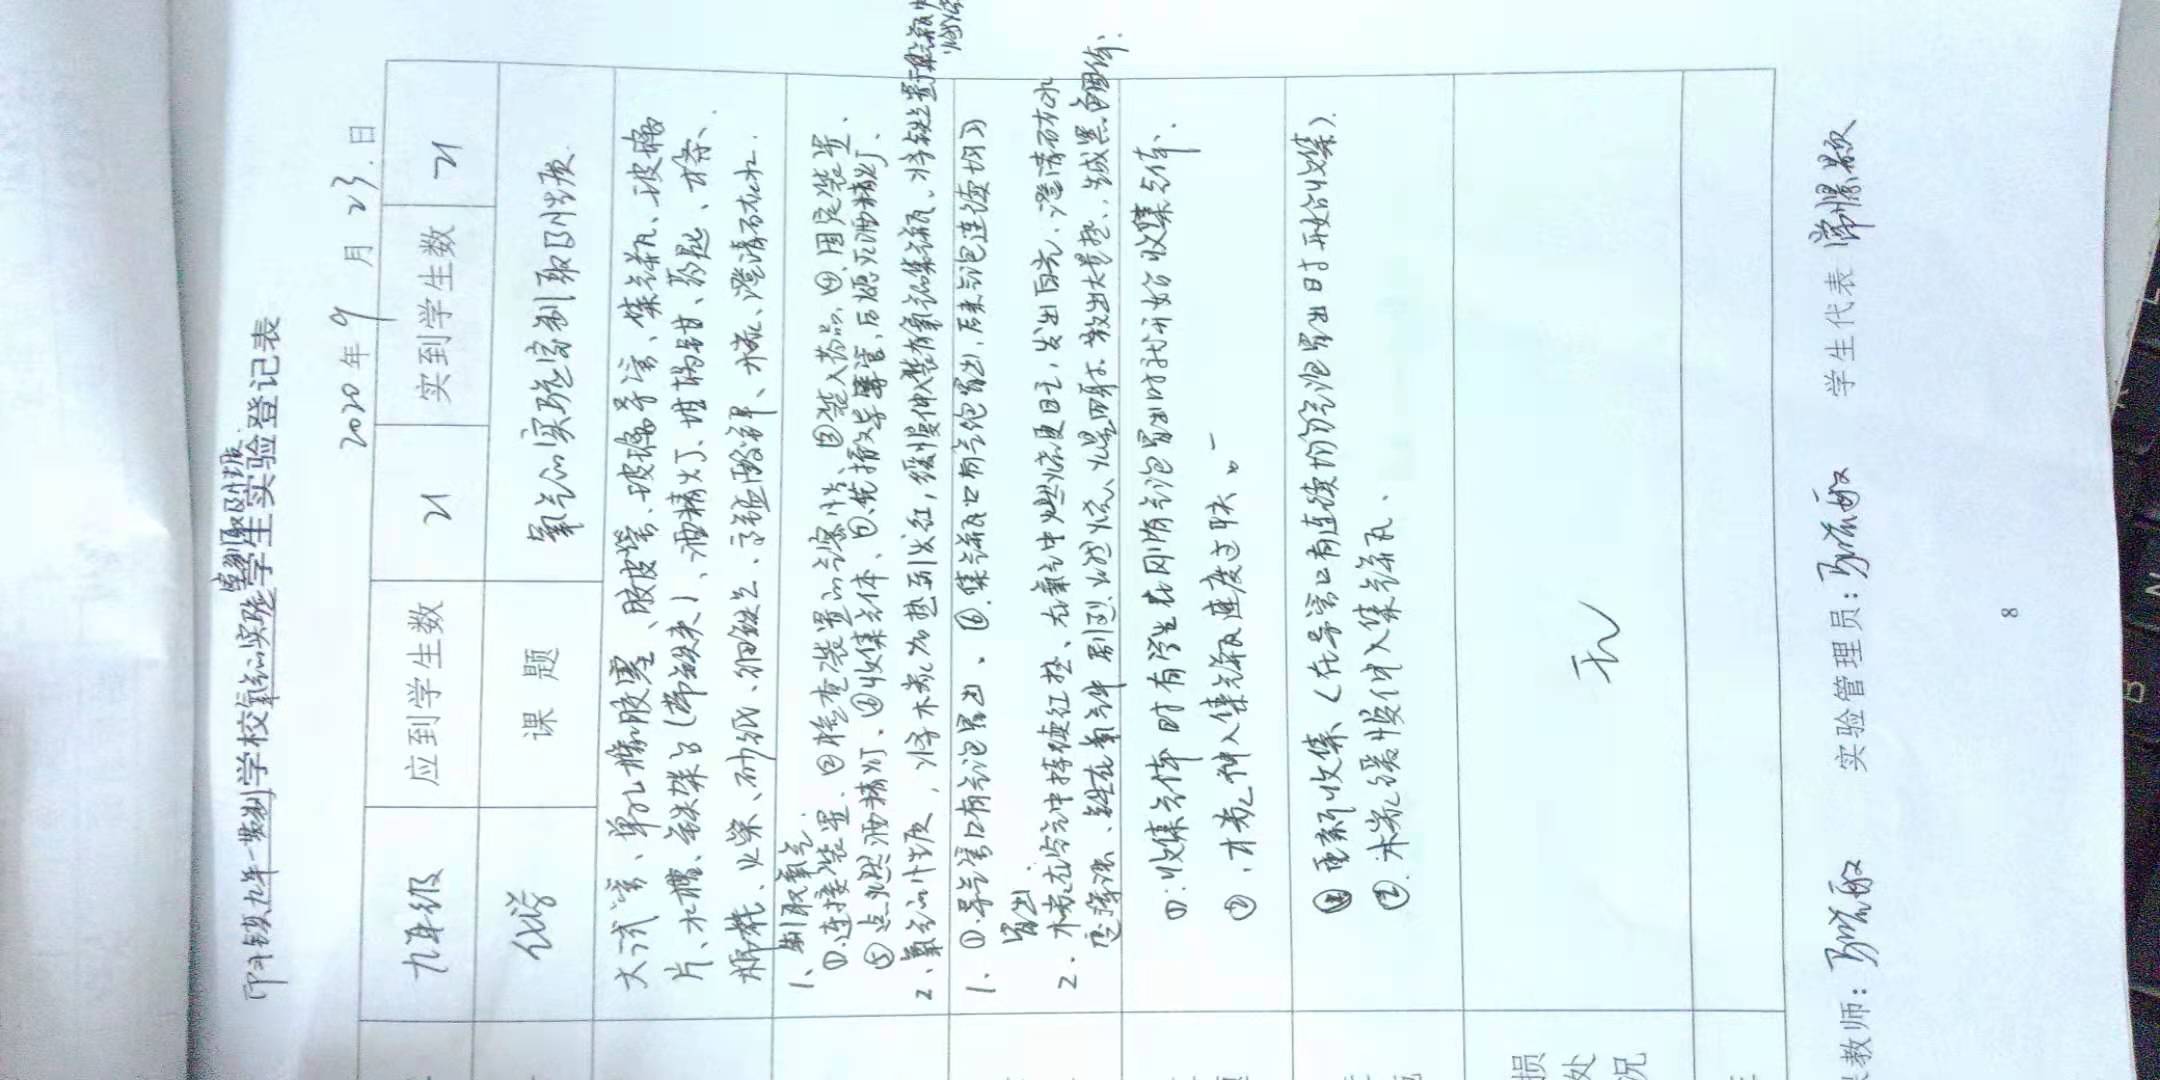 九年一贯制学校氧气的实验室制取与性质学生实验登记表
2020年9月23日
九年级 应到学生数 21 实到学生数 21
化学 课 题 氧气的实验室制取与性质
大试管、单孔橡胶塞、胶皮管、玻璃导管、集气瓶、玻璃
片、水槽、铁架台(带铁夹)、酒精灯、坩埚钳、药匙、棉花、
火柴、砂纸、细铁丝、高锰酸钾、木炭、澄清石灰水.
1、制取氧气.
①.连接装置、②检查装置的气密性、③装入药品、④、固定装置、
⑤点燃酒精灯、⑥收集气体、⑦.先撤导管,后熄灭酒精灯.
2、氧气的性质,将木炭加热到发红,缓慢伸入装有氧气的集气瓶、
1. ①.导气管口有气泡冒出、②.集气瓶口有气泡冒出,后来气泡连续均匀
冒出.
2. 木炭在空气中持续红热、在氧气中燃烧更旺,发出白光、澄清石灰水
变浑浊、铁丝在氧气中剧烈燃烧、火星四射、放出大量热、生成黑色固体.
①:收集气体时有学生在刚有气泡冒出时就开始收集气体.
②、木炭伸入集气瓶速度过快。
①重新收集、(在导管口有连续均匀气泡冒出时开始收集).
②.木炭缓慢伸入集气瓶、
无
损
处
况
教师: 实验管理员: 学生代表
8